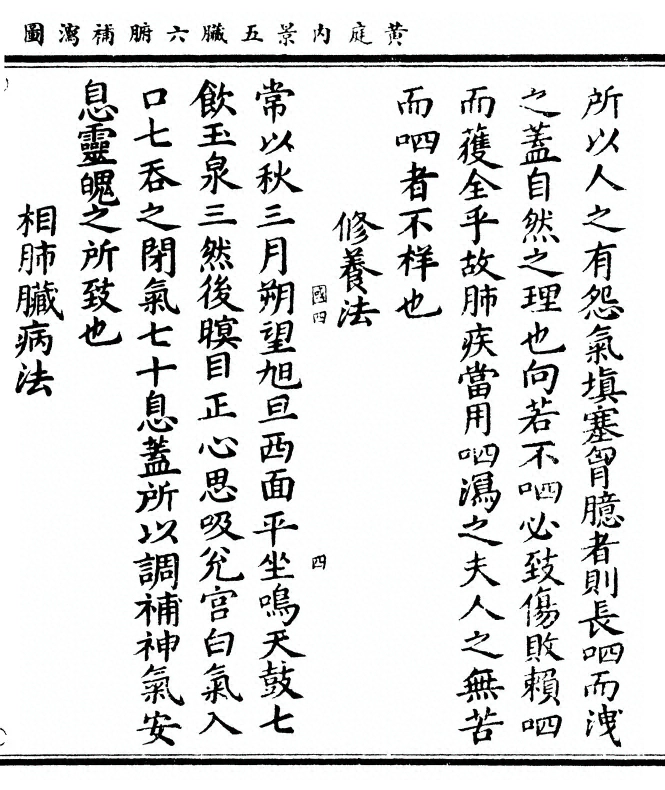 黃庭內景五臟六腑補瀉圖
所以人之有怨氣塡塞胷臆者則長呬而洩
之蓋自然之理也向若不呬必致傷敗賴呬
而獲全乎故肺疾當用呬瀉之夫人之無苦
而呬者不样也
修養法
國四
四
常以秋三月朔望旭旦西面平坐鳴天鼓七
飲玉泉三然後瞑目正心思吸兊宮白氣入
口七吞之閉氣七十息蓋所以調補神氣安
息靈魄之所致也
相肺臟病法